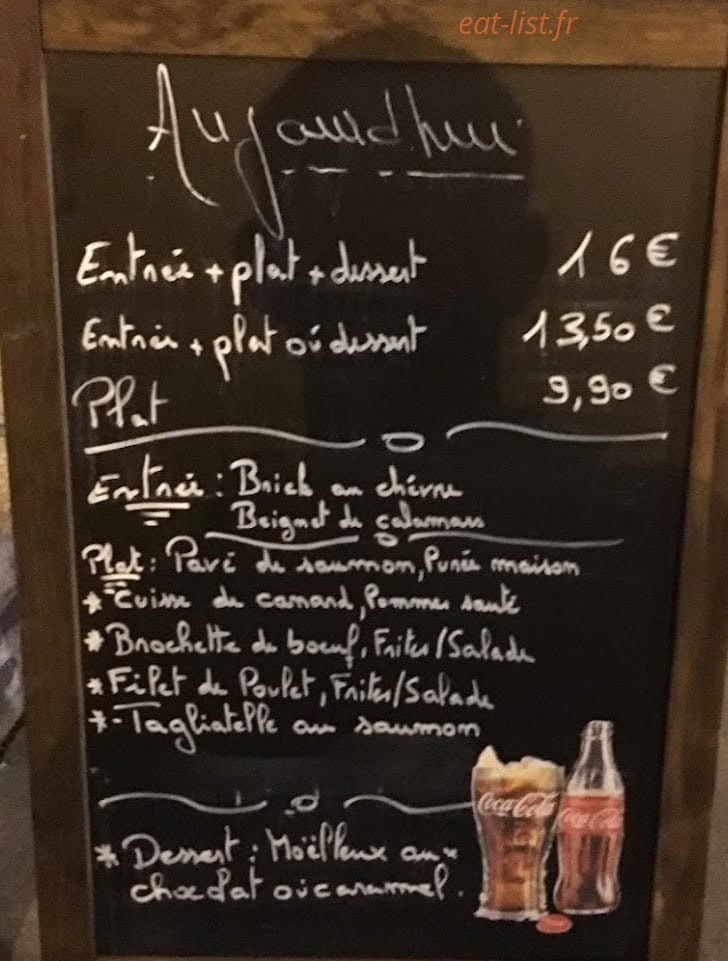 eat-list.fr
Aujourd'hui
Entrée + plat + dessert 16€
Entrée + plat où dessert 13,50€
Plat 9,90€
Entrée : Brick au chèvre
Beignet de calamars
Plat : Pavé de saumon, Purée maison
* Cuisse de canard, Pommes sauté
* Brochette de boeuf, Frites/Salade
* Filet de Poulet, Frites/Salade
* - Tagliatelle au saumon
Coca-Cola Coca-Cola
* Dessert : Moëlleux aux
chocolat où caramel.